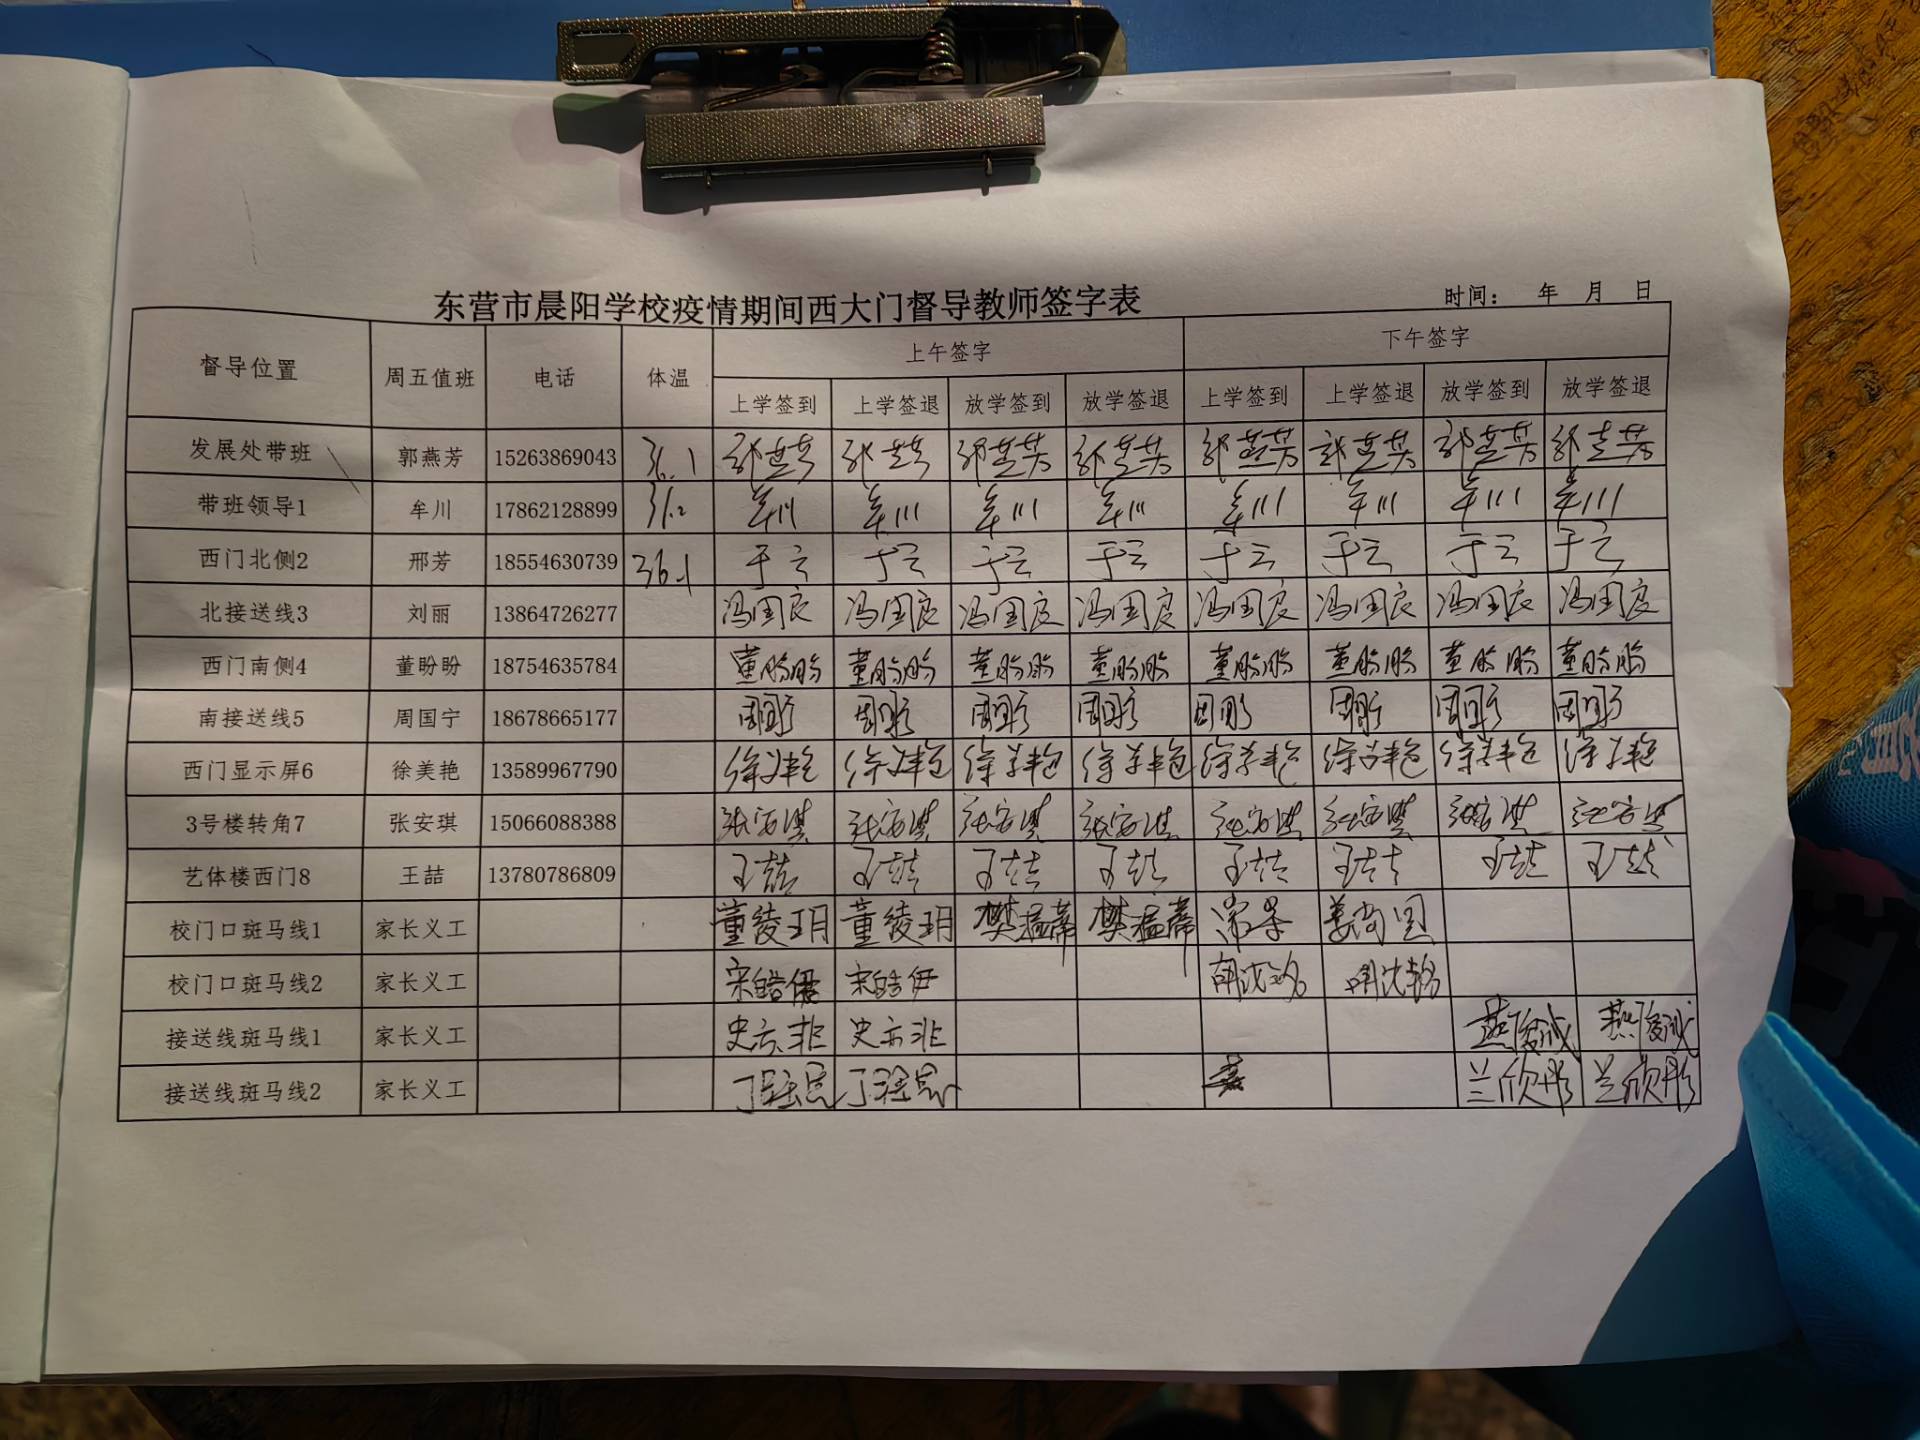 东营市晨阳学校疫情期间西大门督导教师签字表
时间： 年 月 日
督导位置 周五值班 电话 体温 上午签字 下午签字
上学签到 上学签退 放学签到 放学签退 上学签到 上学签退 放学签到 放学签退
发展处带班 郭燕芳 15263869043 36.1 郭燕芳 郭燕芳 郭燕芳 郭燕芳 郭燕芳 郭燕芳 郭燕芳 郭燕芳
带班领导1 牟川 17862128899 36.2 牟川 牟川 牟川 牟川 牟川 牟川 牟川 牟川
西门北侧2 邢芳 18554630739 36.1 于云 于云 于云 于云 于云 于云 于云 于云
北接送线3 刘丽 13864726277 冯国良 冯国良 冯国良 冯国良 冯国良 冯国良 冯国良 冯国良
西门南侧4 董盼盼 18754635784 董盼盼 董盼盼 董盼盼 董盼盼 董盼盼 董盼盼 董盼盼 董盼盼
南接送线5 周国宁 18678665177
西门显示屏6 徐美艳 13589967790 徐美艳 徐美艳 徐美艳 徐美艳 徐美艳 徐美艳 徐美艳 徐美艳
3号楼转角7 张安琪 15066088388 张安琪 张安琪 张安琪 张安琪 张安琪 张安琪 张安琪 张安琪
艺体楼西门8 王喆 13780786809 王喆 王喆 王喆 王喆 王喆 王喆 王喆 王喆
校门口斑马线1 家长义工 董绫玥 董绫玥 樊温蒂 樊温蒂 姜尚国
校门口斑马线2 家长义工 宋皓伊 宋皓伊
接送线斑马线1 家长义工 史亦非 史亦非 燕俊诚 燕俊诚
接送线斑马线2 家长义工 兰欣彤 兰欣彤